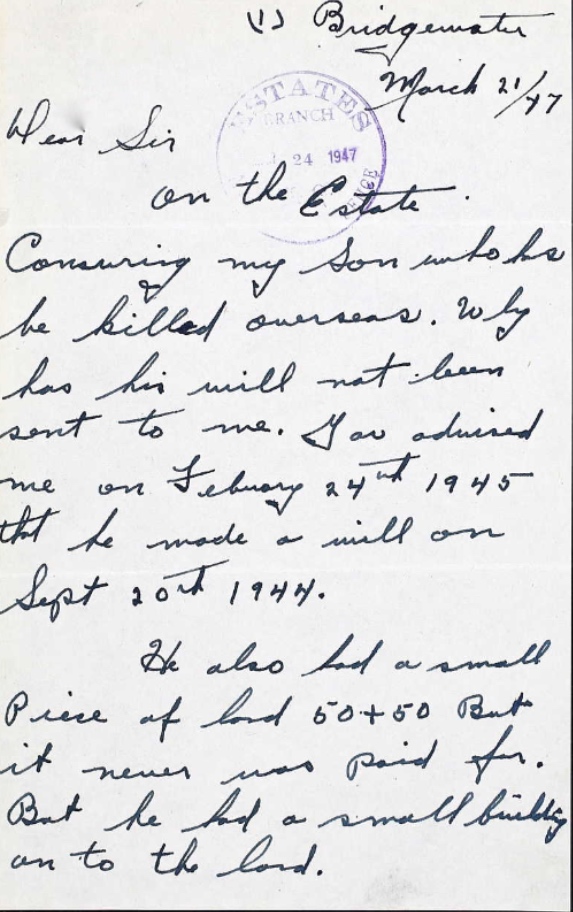 (1) Bridgewater
March 21/47
Dear Sir
ESTATES
BRANCH
24 1947
on the Estate.
Consuring my Son who hs
be killed overseas. Why
has his will not been
sent to me. You advised
me on Febuary 24th 1945
tht he made a will on
Sept 20th 1944.
He also had a small
Piese of land 50+50 But
it never was paid for.
But he had a small building
on to the land.